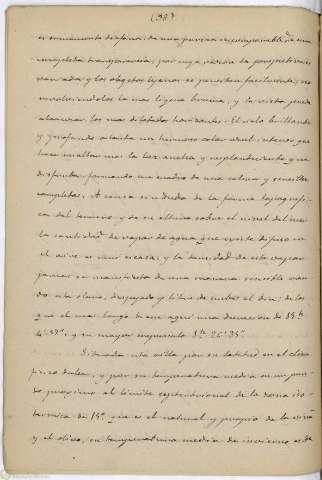 (38)
es sumamente difusa; de una pureza incomparable, de una
completa transparencia, por cuya razón la perspectiva es
variada y los objetos lejanos se presentan facilmente, no
envolviéndolos la más ligera bruma, y la vista puede
alcanzar los más dilatados horizontes. El cielo brillante
y profundo ostenta un hermoso color azul intenso, que
hace resaltar más la luz ancha y resplandeciente que
disfruta, formando un cuadro de una calma y sencillez
completas. A causa sin duda de la forma topográfi-
ca del terreno y de su altura sobre el nivel del mar
la cantidad de vapor de agua que existe difuso en
el aire es muy escasa, y la tensidad de este vapor
jamás se manifiesta de una manera sensible cuan-
do está sereno, despejado y libre de nubes el día, de los
que el más largo tiene aquí una duración de 15h.
y su mayor crepúsculo 1h. 26' 35".
Situada esta villa, por su latitud en el clima
físico dulce, y por su temperatura media en un pun-
to próximo al límite septentrional de la zona iso-
térmica de 15º, que es el natural y propio de la viña
y el olivo, su temperatura media de invierno es de